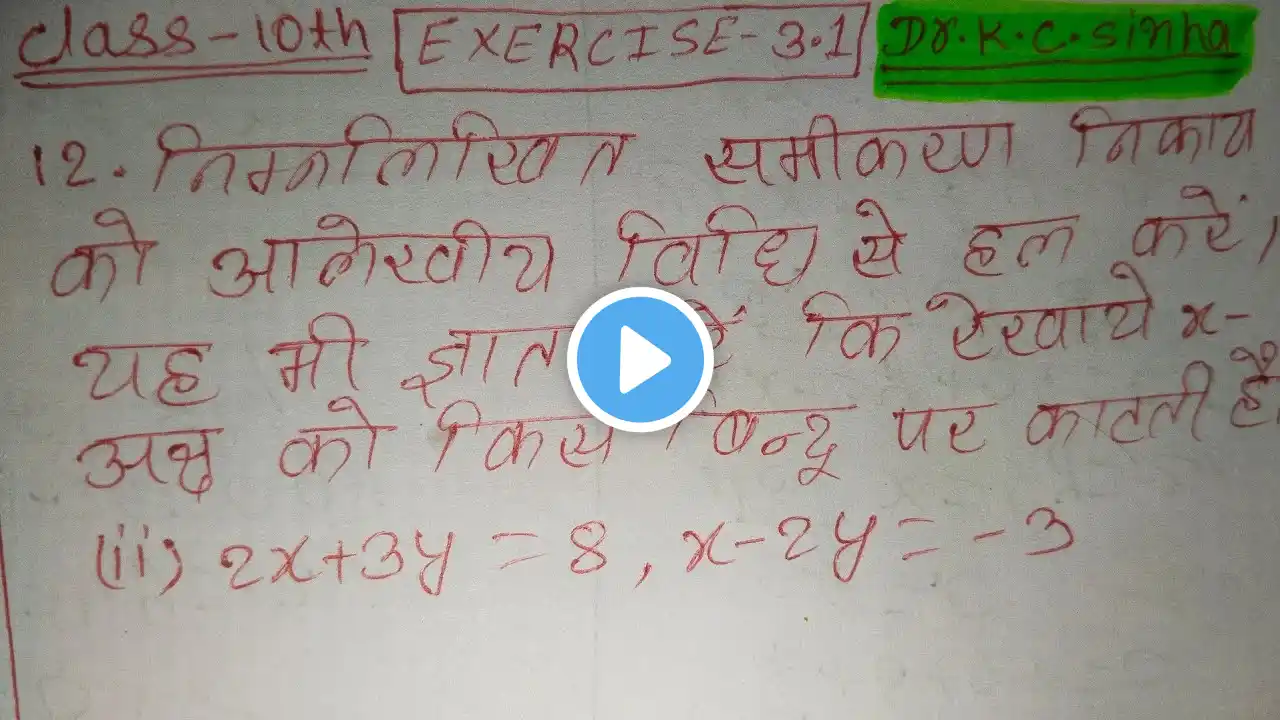 class-10th EXERCISE-3.1 Dr.K.C.Sinha
12. निम्नलिखित समीकरण निकाय
को आलेखीय विधि से हल करें।
यह भी ज्ञात कि रेखाये x-
अक्ष को किस बिन्दू पर काटती है
(ii) 2x+3y=8, x-2y=-3